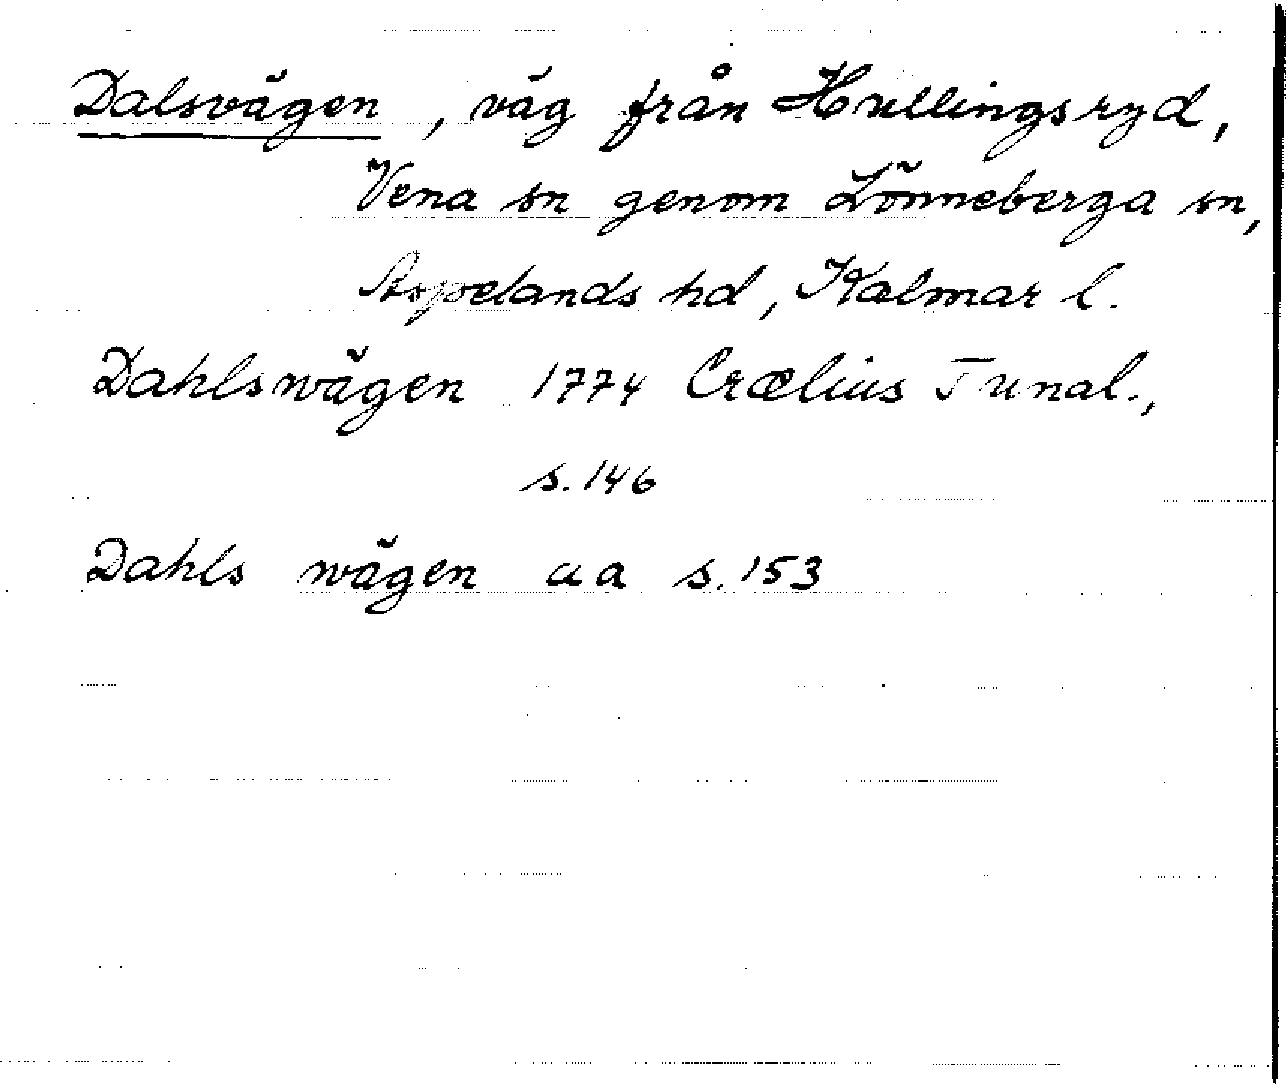 Dalsvägen, väg från Hullingsryd,
Vena sn genom Lönneberga sn,
Aspelands hd, Kalmar l.
Dahlswägen 1774 Crælius Tunal.,
s. 146
Dahls wägen aa s. 153